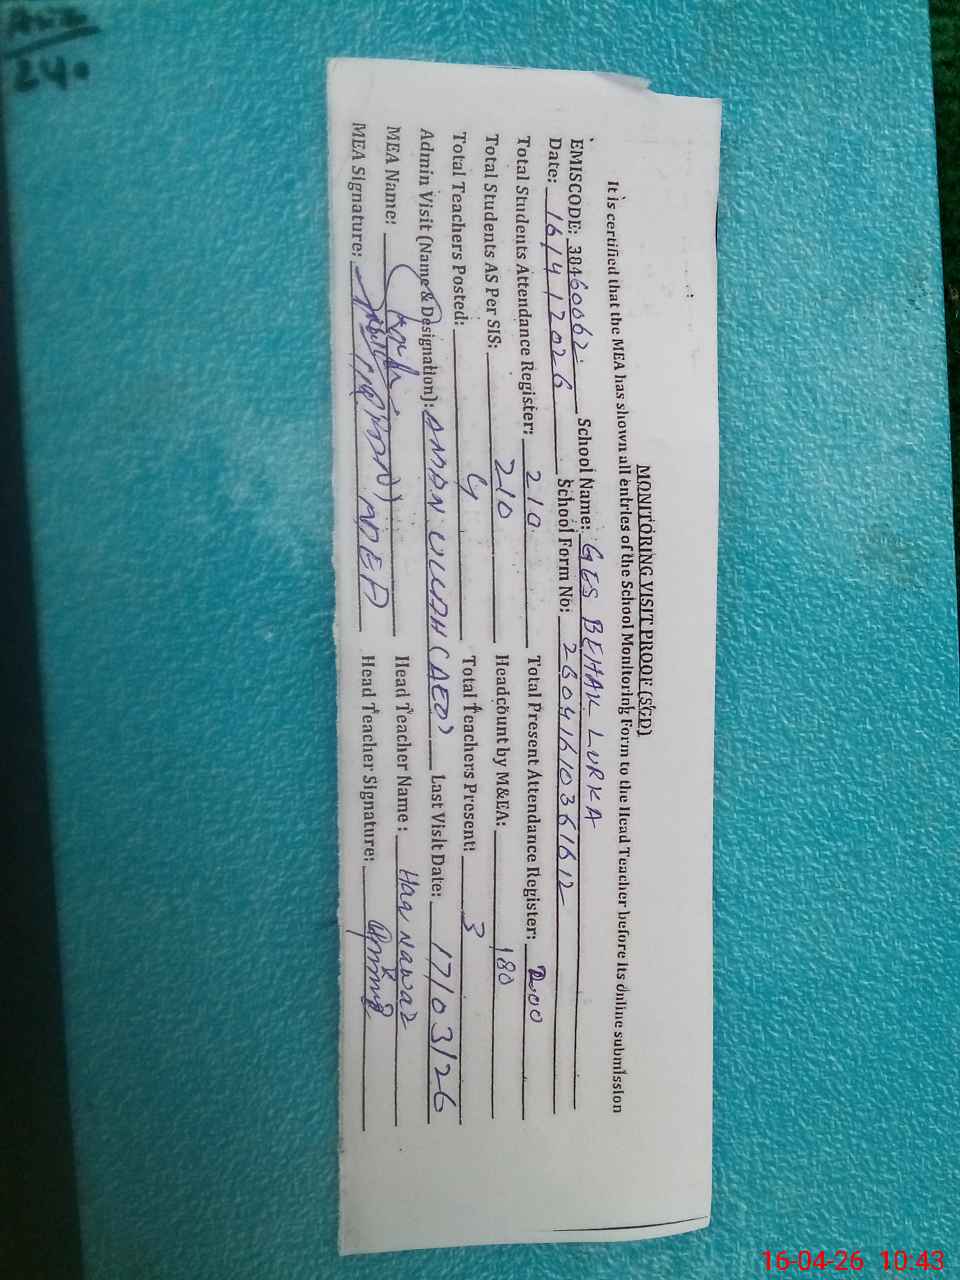 MONITORING VISIT PROOF (SGD)
It is certified that the MEA has shown all entries of the School Monitoring Form to the Head Teacher before its online submission
EMISCODE: 38460062 School Name: GES BEHAK LURKA
Date: 16/4/2026 School Form No: 26041610361612
Total Students Attendance Register: 210 Total Present Attendance Register: 200
Total Students AS Per SIS: 210 Headcount by M&EA: 180
Total Teachers Posted: 4 Total Teachers Present: 3
Admin Visit (Name & Designation): AMAN ULLAH (AEO) Last Visit Date: 17/03/26
MEA Name: Head Teacher Name: Haq Nawaz
MEA Signature: Head Teacher Signature:
240
16-04-26 10:43